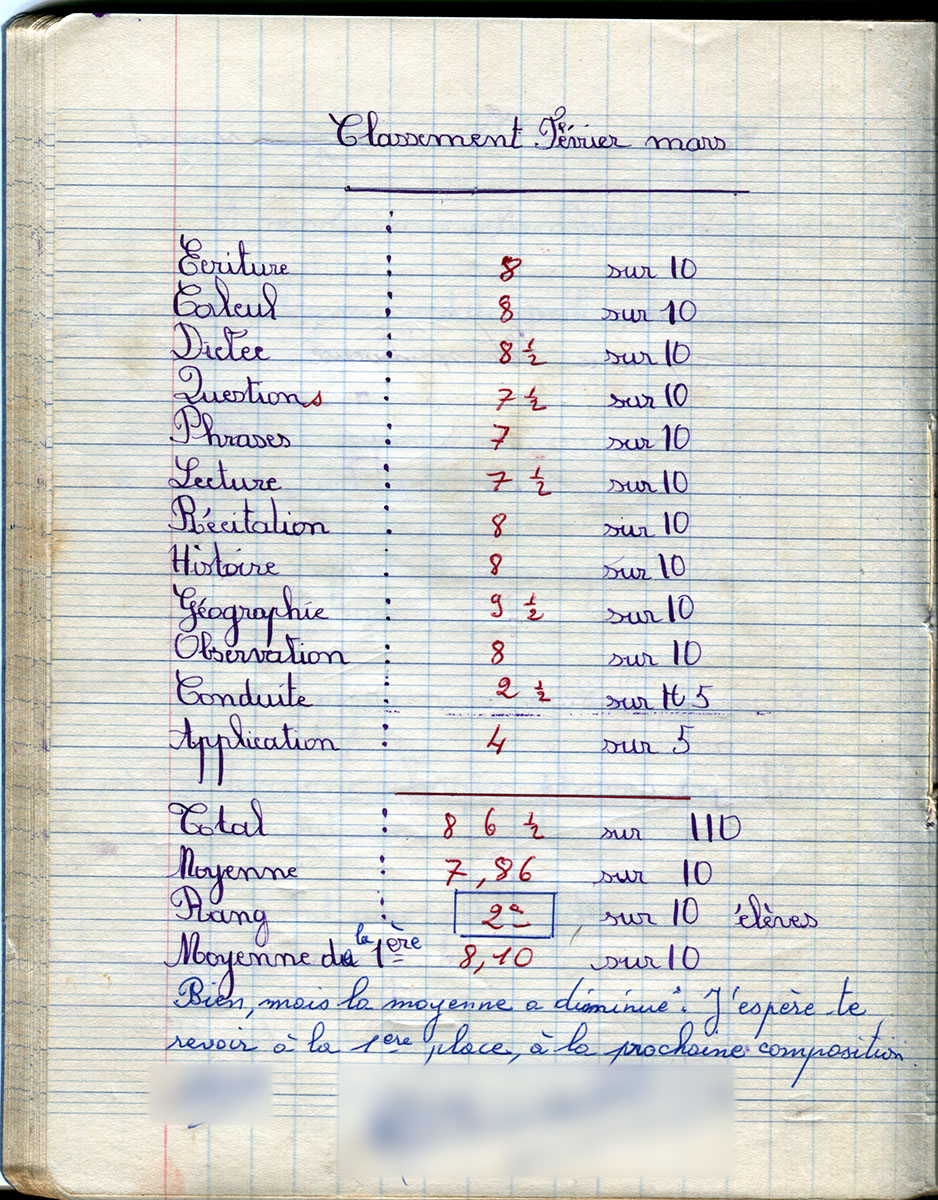 Classement Février mars
:
Ecriture : 8 sur 10
Calcul : 8 sur 10
Dictée : 8 ½ sur 10
Questions : 7 ½ sur 10
Phrases : 7 sur 10
Lecture : 7 ½ sur 10
Récitation : 8 sur 10
Histoire : 8 sur 10
Géographie : 9 ½ sur 10
Observation : 8 sur 10
Conduite : 2 ½ sur 5
Application : 4 sur 5
Total : 86 ½ sur 110
Moyenne : 7,86 sur 10
Rang : 2e sur 10 élèves
Moyenne de la 1ère 8,10 sur 10
Bien, mais la moyenne a diminué. J'espère te
revoir à la 1ere place, à la prochaine composition